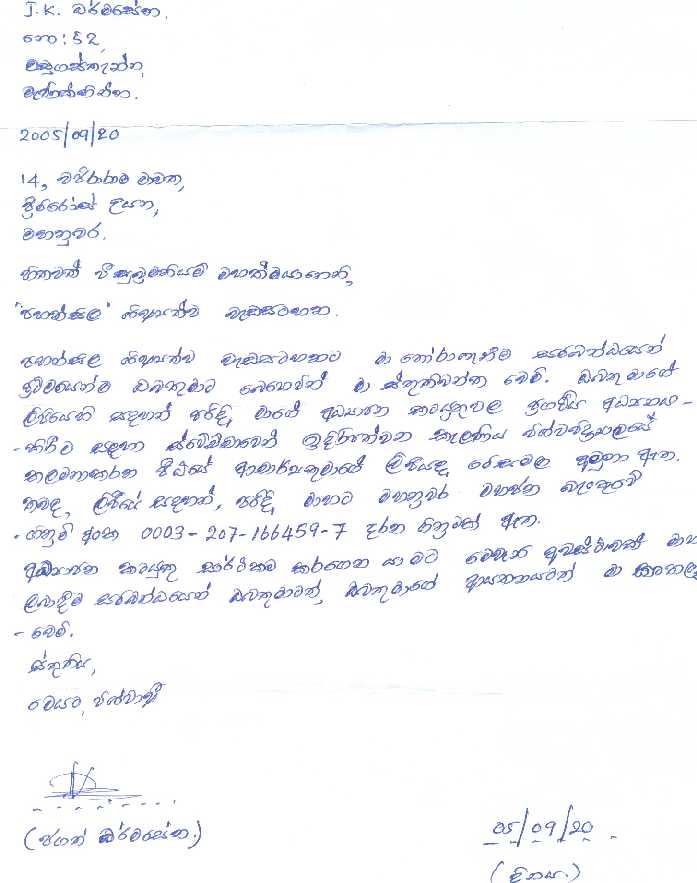 J.K. ධර්මසේන,
නො: 52,
මැණික්හින්න.
2005/09/20
14, වජිරාරාම මාවත,
ප්‍රිම්රෝස් උයන,
මහනුවර.
හිතවත් මහත්මයාණෙනි,
"පහන්සිල" ශිෂ්‍යත්ව වැඩසටහන.
පහන්සිල ශිෂ්‍යත්ව වැඩසටහනට මා තෝරාගැනීම සම්බන්ධයෙන්
ප්‍රථමයෙන්ම ඔබතුමාට බෙහෙවින් මා ස්තුතිවන්ත වෙමි. ඔබතුමාගේ
ලිපියෙහි සඳහන් පරිදි, මාගේ අධ්‍යාපන කටයුතුවල ප්‍රගතිය අධ්‍යයන-
-කිරීම සඳහා ස්වේච්ඡාවෙන් ඉදිරිපත්වන කැලණිය විශ්වවිද්‍යාලයේ
කලමනාකරන පීඨයේ ආචාර්යතුමාගේ ලිපියද මේසමඟ අමුණා ඇත.
තවද, ලිපියේ සඳහන්, පරිදි, මාහට මහනුවර මහජන බැංකුවේ
-ගිනුම් අංක 0003-207-166459-7 දරන ගිනුමක් ඇත.
අධ්‍යාපන කටයුතු සාර්ථකව කරගෙන යාමට මෙවැනි අවස්ථාවක් මාහ
ලබාදීම සම්බන්ධයෙන් ඔබතුමාටත්, ඔබතුමාගේ ආයතනයටත් මා කෘතඥ
-වෙමි.
ස්තුතිය,
මෙයට, විශ්වාසී
(ජගත් ධර්මසේන.)
05/09/20
(දිනය.)